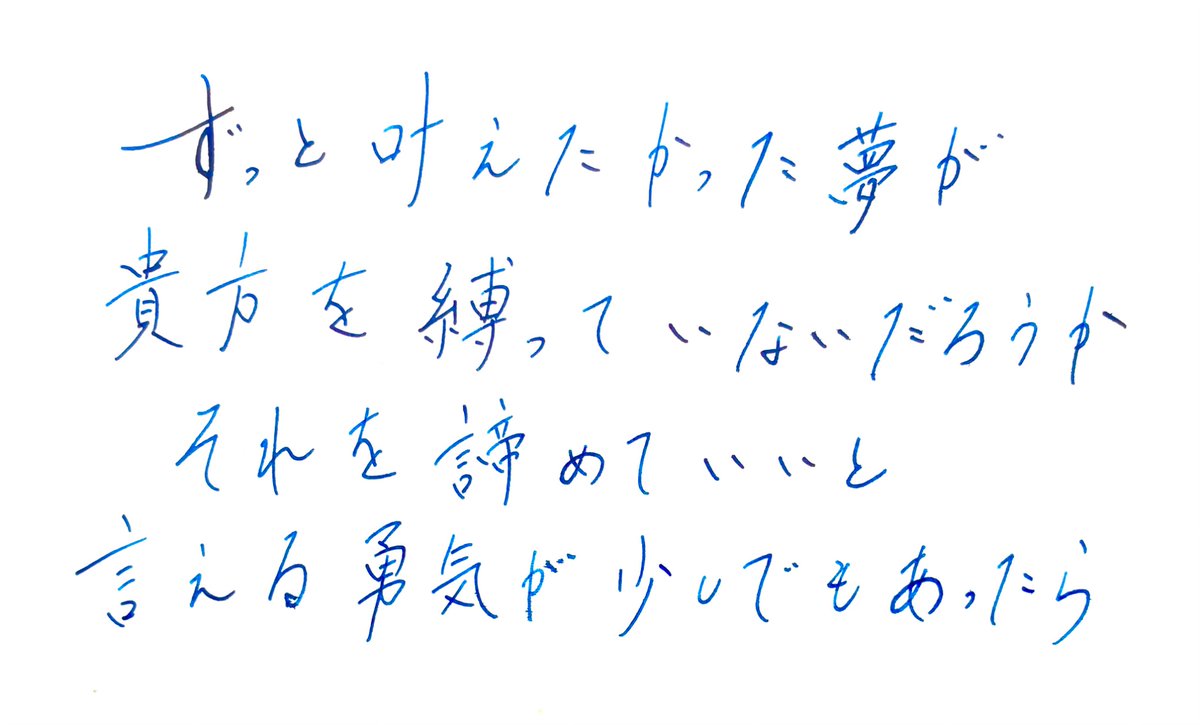 ずっと叶えたかった夢が
貴方を縛っていないだろうか
それを諦めていいと
言える勇気が少しでもあったら